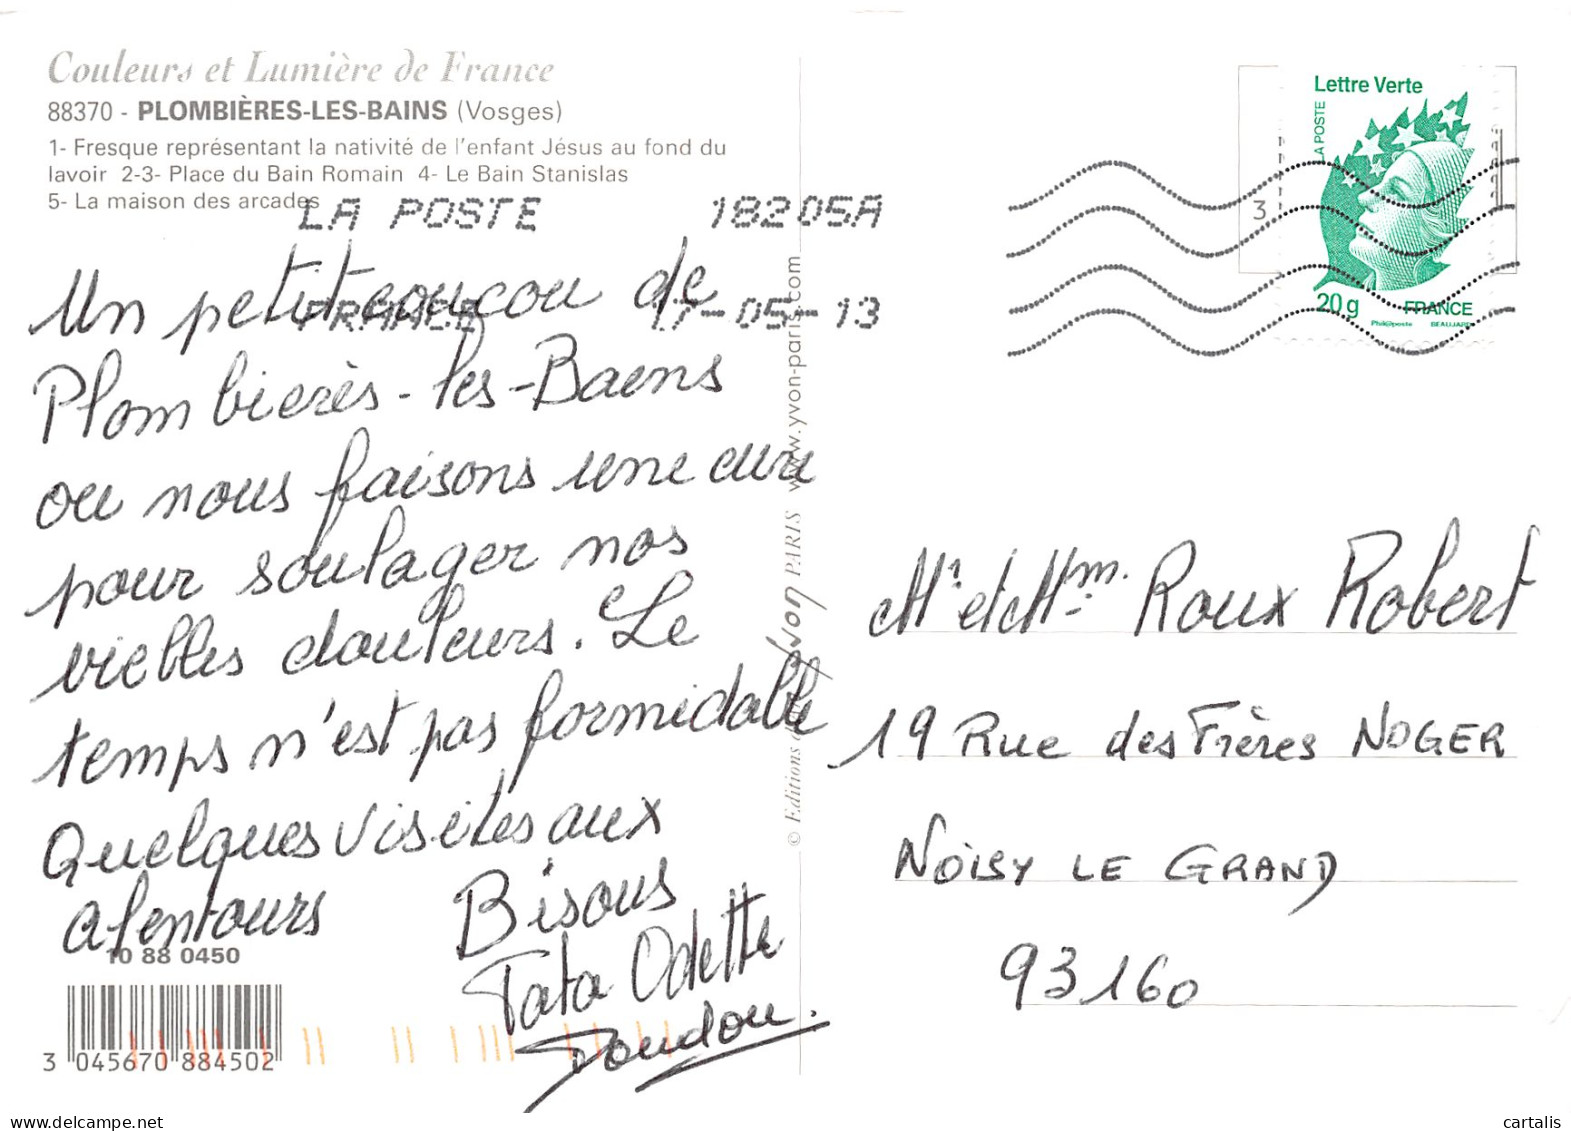 Couleurs et Lumière de France
88370 - PLOMBIÈRES-LES-BAINS (Vosges)
1- Fresque représentant la nativité de l'enfant Jésus au fond du
lavoir 2-3- Place du Bain Romain 4- Le Bain Stanislas
5- La maison des arcades
LA POSTE 18205A
FRANCE 17-05-13
Un petit coucou de
Plombierès-les-Bains
ou nous faisons une cure
pour soulager nos
vielles douleurs. Le
temps n'est pas formidable
Quelques visites aux
alentours
Bisous
Tata Odette
Doudou.
10 88 0450
3 045670 884502
© Editions d'art Yvon PARIS www.yvon-paris.com
Lettre Verte
LA POSTE
20 g FRANCE
Phil@poste BEAUJARD
3
Mr et Mme. Roux Robert
19 Rue des Frères NOGER
NOISY LE GRAND
93160
cartalis